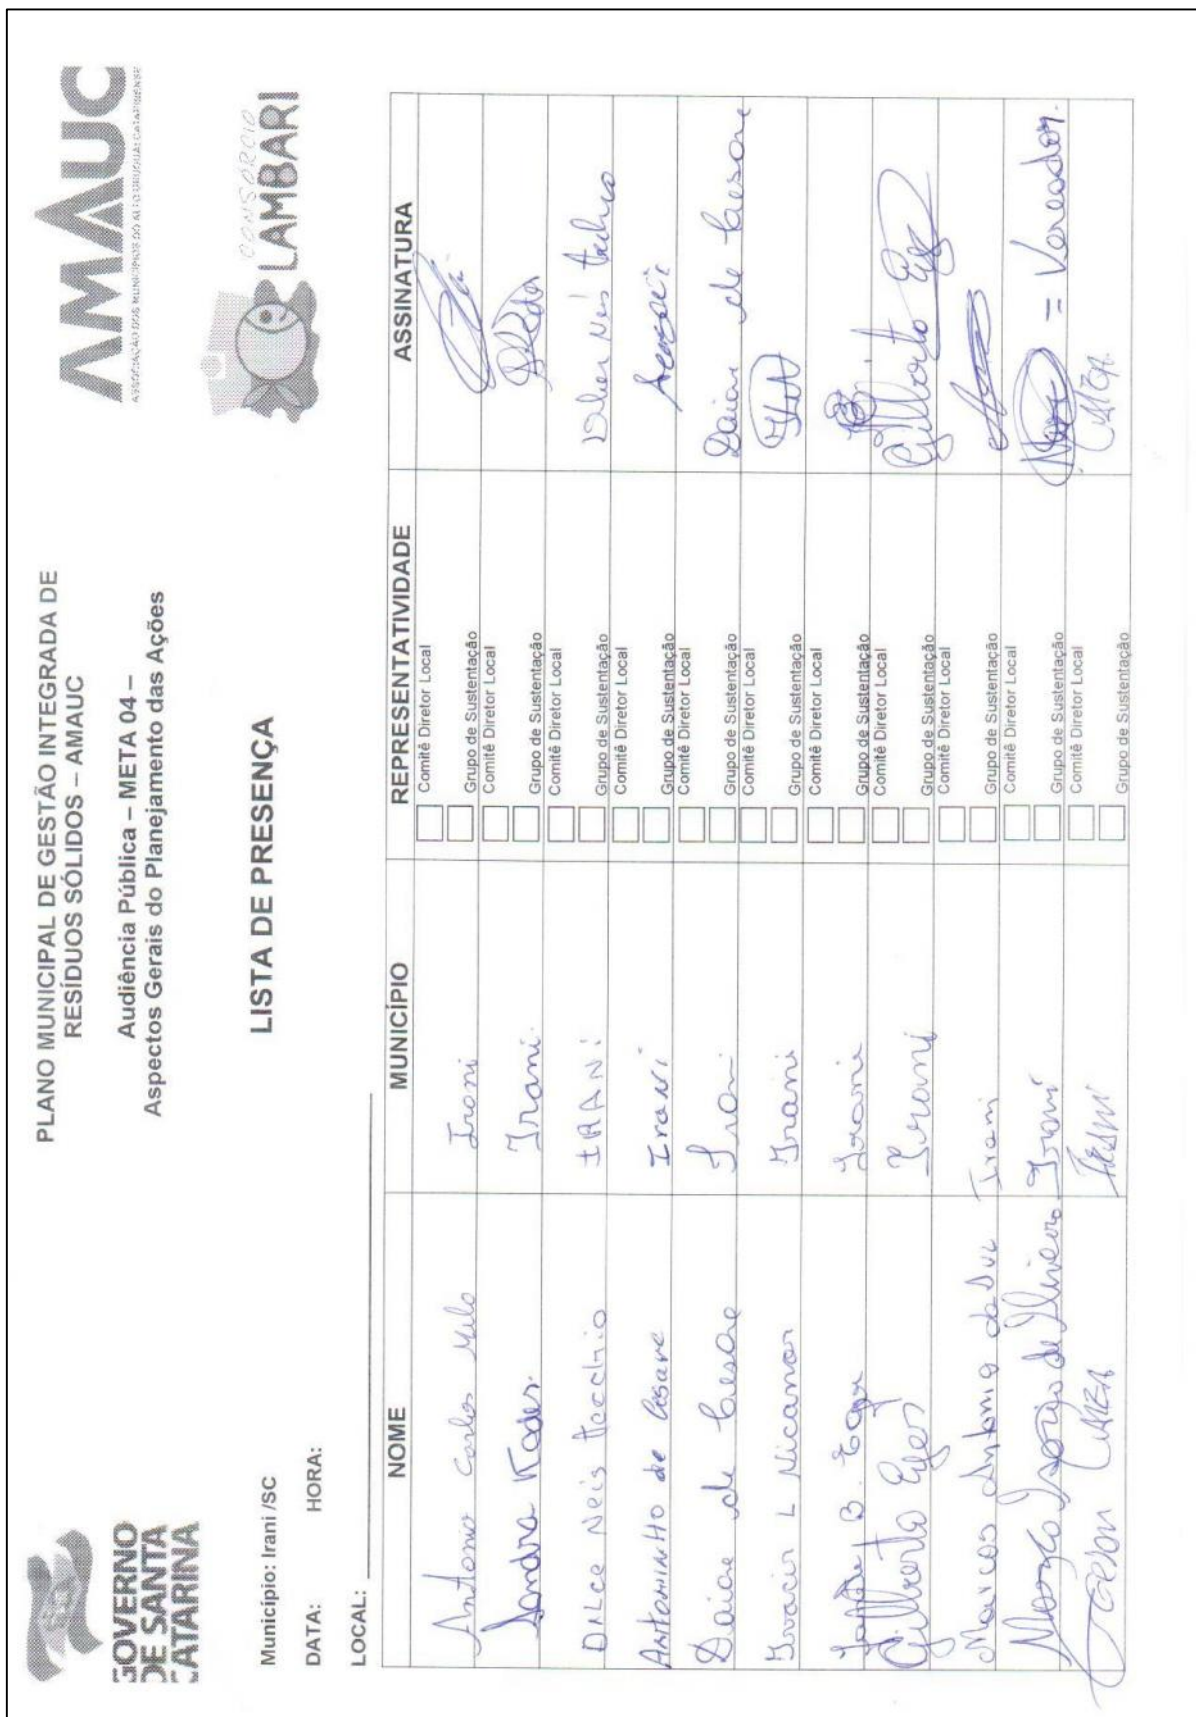 GOVERNO
DE SANTA
CATARINA
PLANO MUNICIPAL DE GESTÃO INTEGRADA DE
RESÍDUOS SÓLIDOS – AMAUC
Audiência Pública – META 04 –
Aspectos Gerais do Planejamento das Ações
AMAUC
ASSOCIAÇÃO DOS MUNICÍPIOS DO ALTO URUGUAI CATARINENSE
CONSÓRCIO
LAMBARI
LISTA DE PRESENÇA
Município: Irani /SC
DATA: HORA:
LOCAL:
NOME MUNICÍPIO REPRESENTATIVIDADE ASSINATURA
Antonio Carlos Melo Irani Comitê Diretor Local
Grupo de Sustentação
Sandra Kades Irani Comitê Diretor Local
Grupo de Sustentação
Dilce Neis IRANI Comitê Diretor Local
Grupo de Sustentação
Antoninho de Cesare Irani Comitê Diretor Local
Grupo de Sustentação
Daiane de Cesare Irani Comitê Diretor Local Daiane de Cesare
Grupo de Sustentação
L Nicanor Irani Comitê Diretor Local
Grupo de Sustentação
B. Irani Comitê Diretor Local
Grupo de Sustentação
Gilberto Irani Comitê Diretor Local Gilberto
Grupo de Sustentação
Marcos Antonio da Irani Comitê Diretor Local
Grupo de Sustentação
de Oliveira Irani Comitê Diretor Local = Vereador.
Grupo de Sustentação
Irani Comitê Diretor Local
Grupo de Sustentação